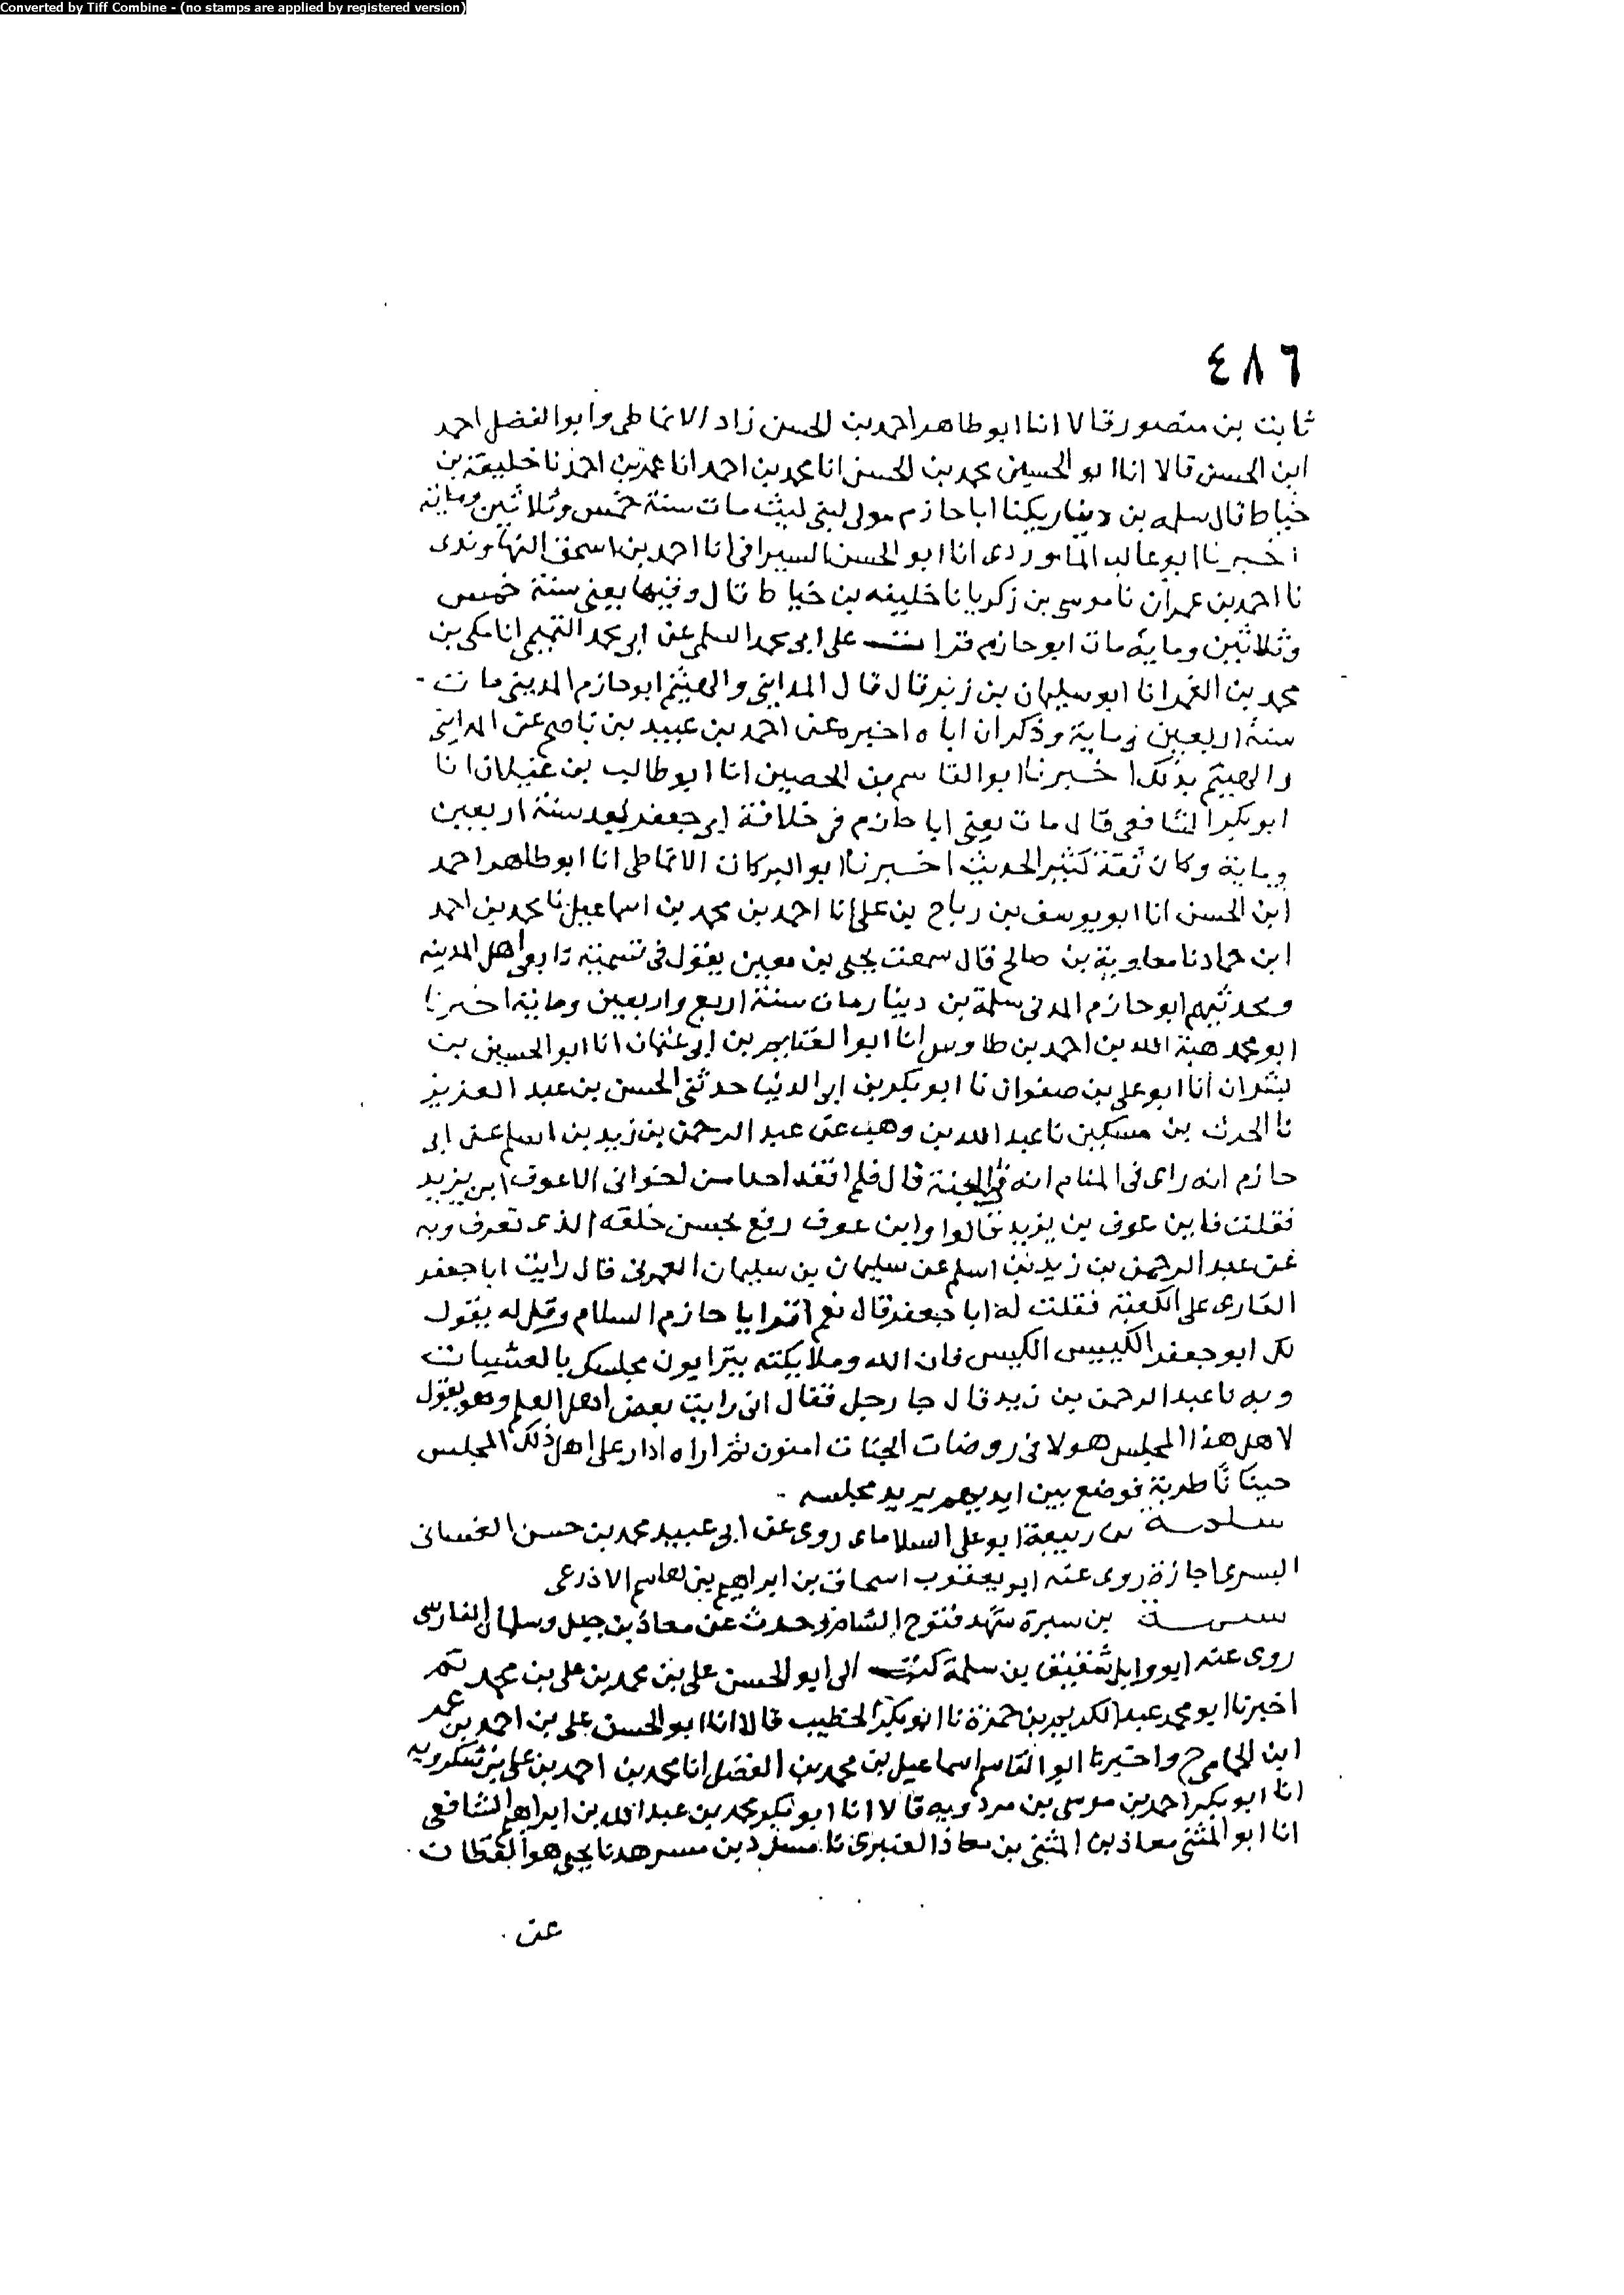 Converted by Tiff Combine - (no stamps are applied by registered version)
٤٨٦
ثابت بن منصور قالا انا ابو طاهر احمد بن الحسن زاد الانماطى وابوالفضل احمد
ابن الحسن قالا انا ابو الحسين محمد بن الحسن انا محمد بن احمد انا عمر بن احمد نا خليفة بن
خياط قال سلمه بن دينار يكنا اباحازم مولى لبنى ليث مات سنة خمس وثلاثين ومايه
اخبرنا ابوغالب الماوردى انا ابو الحسن السيرافى انا احمد بن اسحق النهاوندى
نا احمد بن عمران نا موسى بن زكريا نا خليفه بن خياط قال وفيها يعنى سنة خمس
وثلاثين وماية مات ابوحازم قرات على ابى محمد السلمى عن ابى محمد التميمى انا مكى بن
محمد بن الغمر انا ابو سليمان بن زبر قال قال المداينى والهيثم ابوحازم المدينى مات
سنة اربعين وماية وذكر ان اباه اخبره عن احمد بن عبيد بن ناصح عن المداينى
والهيثم بذلك اخبرنا ابوالقاسم بن الحصين انا ابوطالب بن غيلان انا
ابوبكر الشافعى قال مات يعنى ابا حازم فى خلافة ابى جعفر بعد سنة اربعين
وماية وكان ثقة كثير الحديث اخبرنا ابوالبركات الانماطى انا ابوطاهر احمد
ابن الحسن انا ابويوسف بن رباح بن على انا احمد بن محمد بن اسماعيل نا محمد بن احمد
ابن حماد نا معاوية بن صالح قال سمعت يحيى بن معين يقول فى تسمية تابعى اهل المدينه
ومحدثيهم ابوحازم المدنى سلمة بن دينار مات سنة اربع واربعين وماية اخبرنا
ابومحمد هبة الله بن احمد بن طاوس انا ابوالغنايم بن ابى عثمان انا ابوالحسين بن
بشران انا ابوعلى بن صفوان نا ابوبكر بن ابى الدنيا حدثنى الحسن بن عبد العزيز
نا الحرث بن مسكين نا عبد الله بن وهب عن عبد الرحمن بن زيد بن اسلم عن ابى
حازم انه راى فى المنام انه فى الجنة قال فلم افقد احدا من اخوانى الا عوف ابن يزيد
فقلت فاين عوف بن يزيد قالوا واين عوف رفع بحسن خلقه الذى تعرف وبه
عن عبد الرحمن بن زيد بن اسلم عن سليمان بن سليمان العمرى قال رايت ابا جعفر
القارى على الكعبة فقلت له ابا جعفر قال نعم اقرا ابا حازم السلام وقل له يقول
لك ابو جعفر الكيس الكيس فان الله وملايكته يترايون مجلسك بالعشيات
وبه نا عبد الرحمن بن زيد قال جا رجل فقال انى رايت بعض اهل العلم وهو يقول
لاهل هذا المجلس هولا فى روضات الجنات امنون ثم اراه ادار على اهل ذلك المجلس
حيتانا طرية فوضع بين ايديهم يريد مجلسه
سلمة بن ربيعة ابوعلى السلامانى روى عن ابى عبيد محمد بن حسن الغسانى
البسرى اجازة روى عنه ابو يعقوب اسحاق بن ابراهيم بن هاشم الاذرعى
سلمة بن سبرة شهد فتوح الشام وحدث عن معاذ بن جبل وسلمان الفارسى
روى عنه ابو وايل شقيق بن سلمة كتب الى ابو الحسن على بن محمد بن على بن محمد ثم
اخبرنا ابو محمد عبد الكريم بن حمزة نا ابو بكر الخطيب قالا انا ابو الحسن على بن احمد بن عمر
ابن الحمامى ح واخبرنا ابو القاسم اسماعيل بن محمد بن الفضل انا محمد بن احمد بن على بن شكرويه
انا ابو بكر احمد بن موسى بن مردويه قالا انا ابو بكر محمد بن عبد الله بن ابراهيم الشافعى
انا ابو المثنى معاذ بن المثنى بن معاذ العنبرى نا مسدد بن مسرهد نا يحيى هو القطان
عن